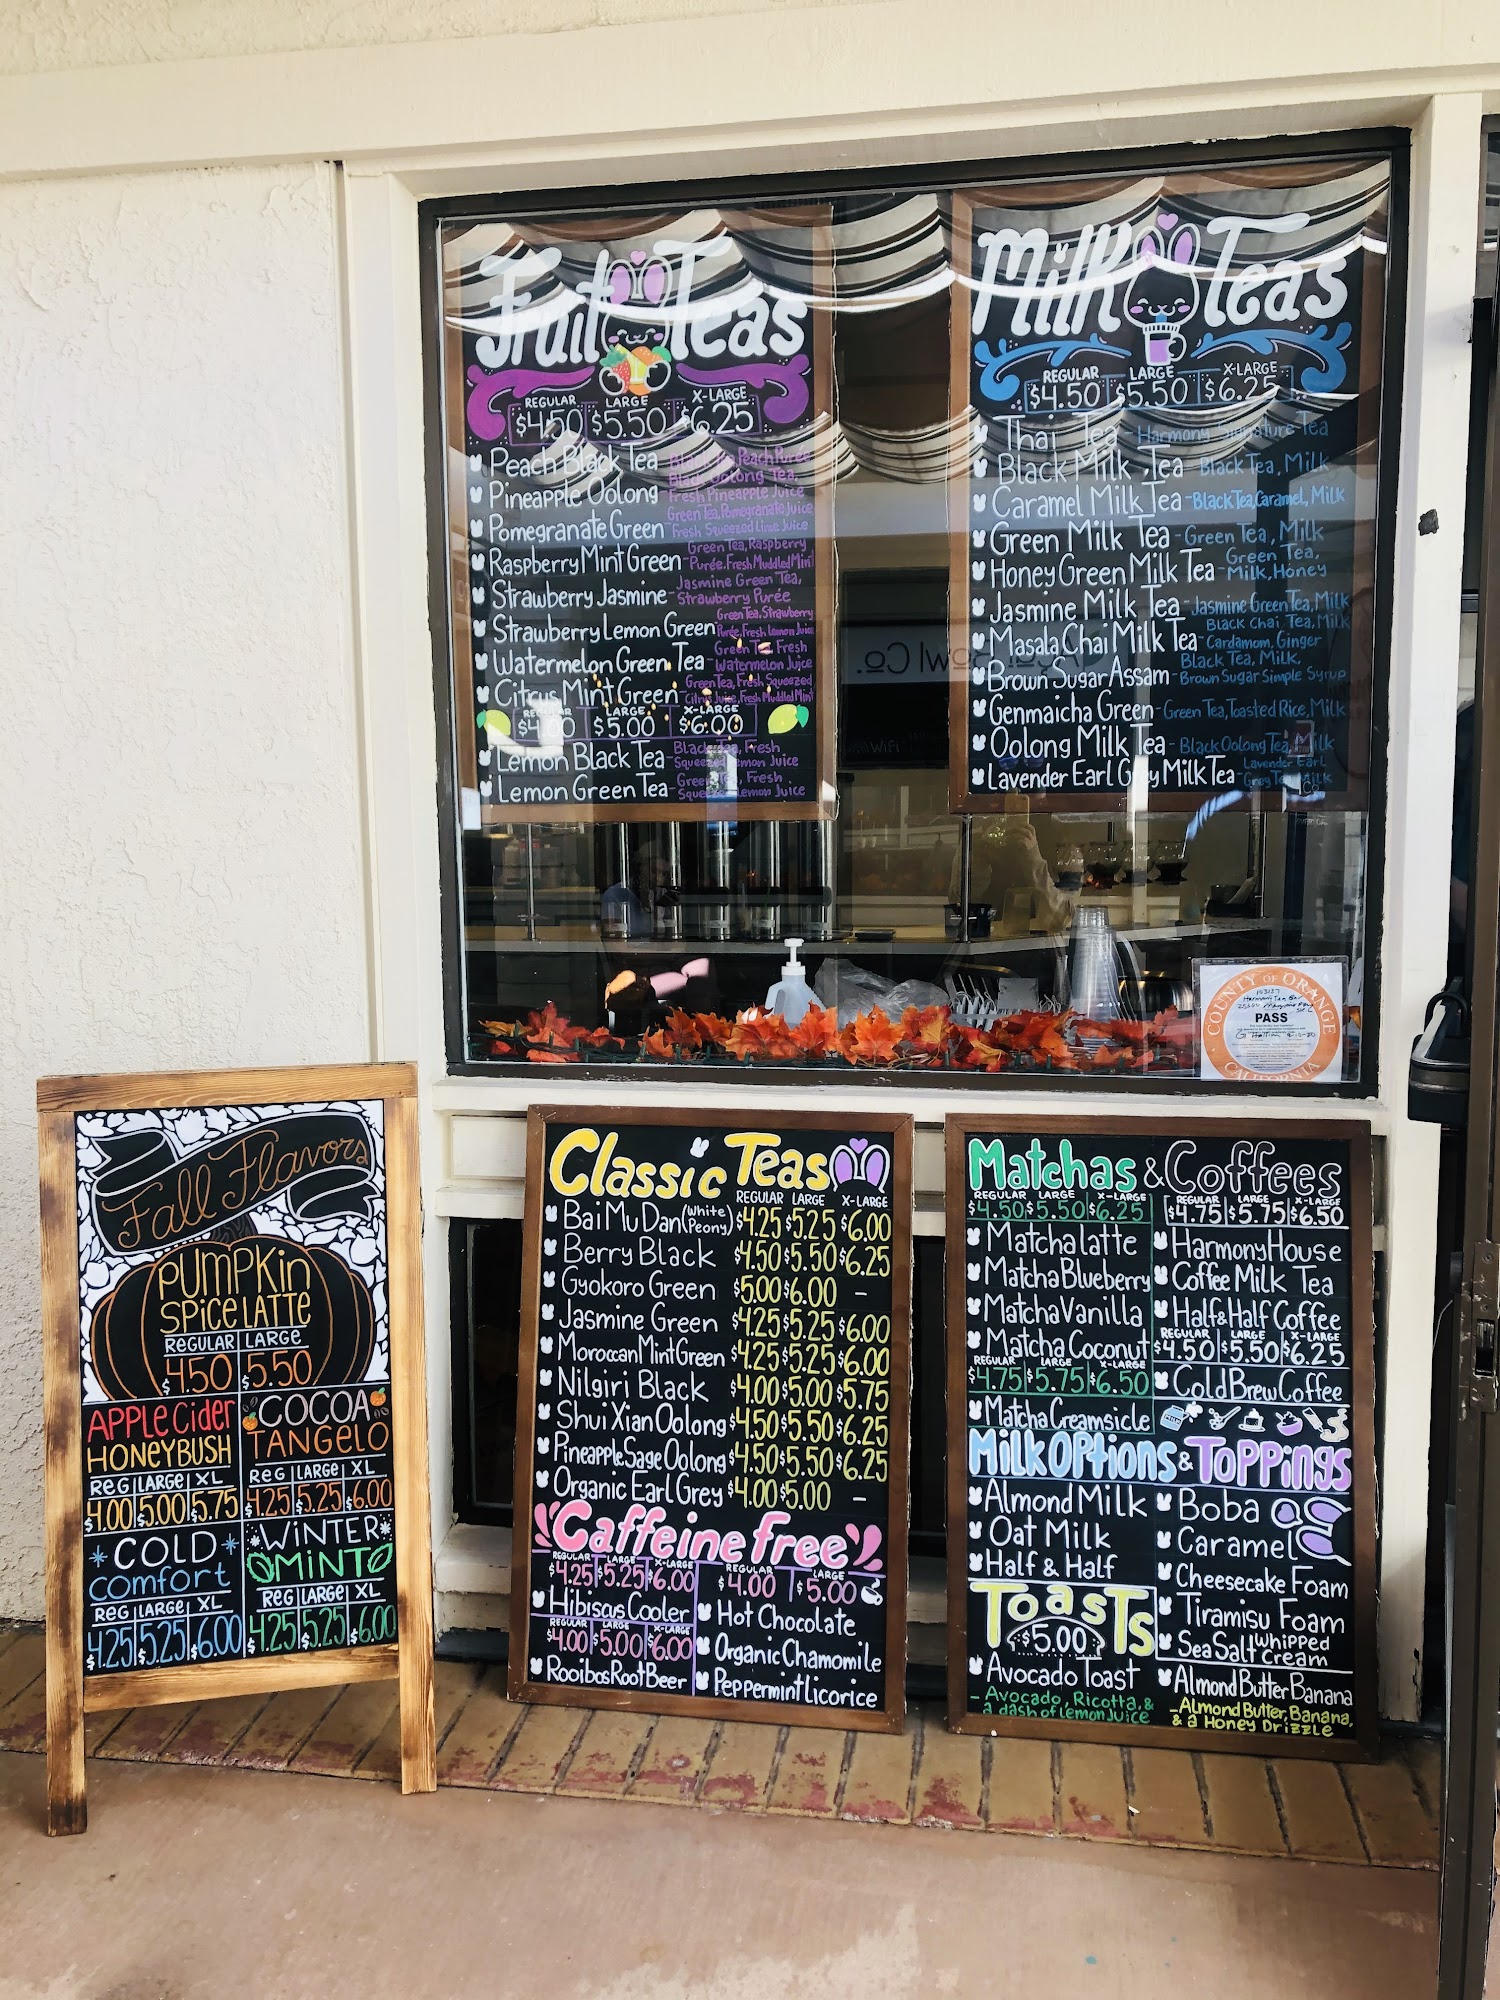 Fruit Teas
REGULAR LARGE X-LARGE
$4.50 $5.50 $6.25
Peach Black Tea - Black Tea, Peach Purée
Pineapple Oolong - Black Oolong Tea, Fresh Pineapple Juice
Pomegranate Green - Green Tea, Pomegranate Juice
Fresh Squeezed Lime Juice
Raspberry Mint Green - Green Tea, Raspberry
Purée, Fresh Muddled Mint
Strawberry Jasmine - Jasmine Green Tea,
Strawberry Purée
Strawberry Lemon Green - Green Tea, Strawberry
Purée, Fresh Lemon Juice
Watermelon Green Tea - Green Tea, Fresh
Watermelon Juice
Citrus Mint Green - Green Tea, Fresh Squeezed
Citrus Juice, Fresh Muddled Mint
REGULAR LARGE X-LARGE
$4.00 $5.00 $6.00
Lemon Black Tea - Black Tea, Fresh
Squeezed Lemon Juice
Lemon Green Tea - Green Tea, Fresh
Squeezed Lemon Juice
Milk Teas
REGULAR LARGE X-LARGE
$4.50 $5.50 $6.25
Thai Tea - Harmony Signature Tea
Black Milk Tea - Black Tea, Milk
Caramel Milk Tea - Black Tea, Caramel, Milk
Green Milk Tea - Green Tea, Milk
Honey Green Milk Tea - Green Tea,
Milk, Honey
Jasmine Milk Tea - Jasmine Green Tea, Milk
Masala Chai Milk Tea - Black Chai Tea, Milk
Cardamom, Ginger
Brown Sugar Assam - Black Tea, Milk,
Brown Sugar Simple Syrup
Genmaicha Green - Green Tea, Toasted Rice, Milk
Oolong Milk Tea - Black Oolong Tea, Milk
Lavender Earl Grey Milk Tea - Lavender Earl
Grey Tea, Milk
COUNTY OF ORANGE
Harmony Tea Bar
PASS
CALIFORNIA
Fall Flavors
PUMPKin
SPICE LATTE
REGULAR LARGE
$4.50 $5.50
APPLE CiDER
HONEYBUSH
REG LARGE XL
$4.00 $5.00 $5.75
COCOA
TANGELO
REG LARGE XL
$4.25 $5.25 $6.00
COLD
comfort
REG LARGE XL
$4.25 $5.25 $6.00
WiNTER
MiNT
REG LARGE XL
$4.25 $5.25 $6.00
Classic Teas
REGULAR LARGE X-LARGE
Bai Mu Dan (White Peony) $4.25 $5.25 $6.00
Berry Black $4.50 $5.50 $6.25
Gyokoro Green $5.00 $6.00 -
Jasmine Green $4.25 $5.25 $6.00
Moroccan Mint Green $4.25 $5.25 $6.00
Nilgiri Black $4.00 $5.00 $5.75
Shui Xian Oolong $4.50 $5.50 $6.25
Pineapple Sage Oolong $4.50 $5.50 $6.25
Organic Earl Grey $4.00 $5.00 -
Caffeine Free
REGULAR LARGE X-LARGE
$4.25 $5.25 $6.00
Hibiscus Cooler
REGULAR LARGE X-LARGE
$4.00 $5.00 $6.00
Rooibos Root Beer
REGULAR LARGE
$4.00 $5.00
Hot Chocolate
Organic Chamomile
Peppermint Licorice
Matchas & Coffees
REGULAR LARGE X-LARGE
$4.50 $5.50 $6.25
Matcha latte
Matcha Blueberry
Matcha Vanilla
Matcha Coconut
REGULAR LARGE X-LARGE
$4.75 $5.75 $6.50
Matcha Creamsicle
REGULAR LARGE X-LARGE
$4.75 $5.75 $6.50
Harmony House
Coffee Milk Tea
Half & Half Coffee
REGULAR LARGE X-LARGE
$4.50 $5.50 $6.25
Cold Brew Coffee
Milk Options & Toppings
Almond Milk
Oat Milk
Half & Half
Boba
Caramel
Cheesecake Foam
Tiramisu Foam
Sea Salt Whipped Cream
Toasts
$5.00
Avocado Toast
- Avocado, Ricotta, &
a dash of lemon Juice
Almond Butter Banana
- Almond Butter, Banana,
& a Honey Drizzle